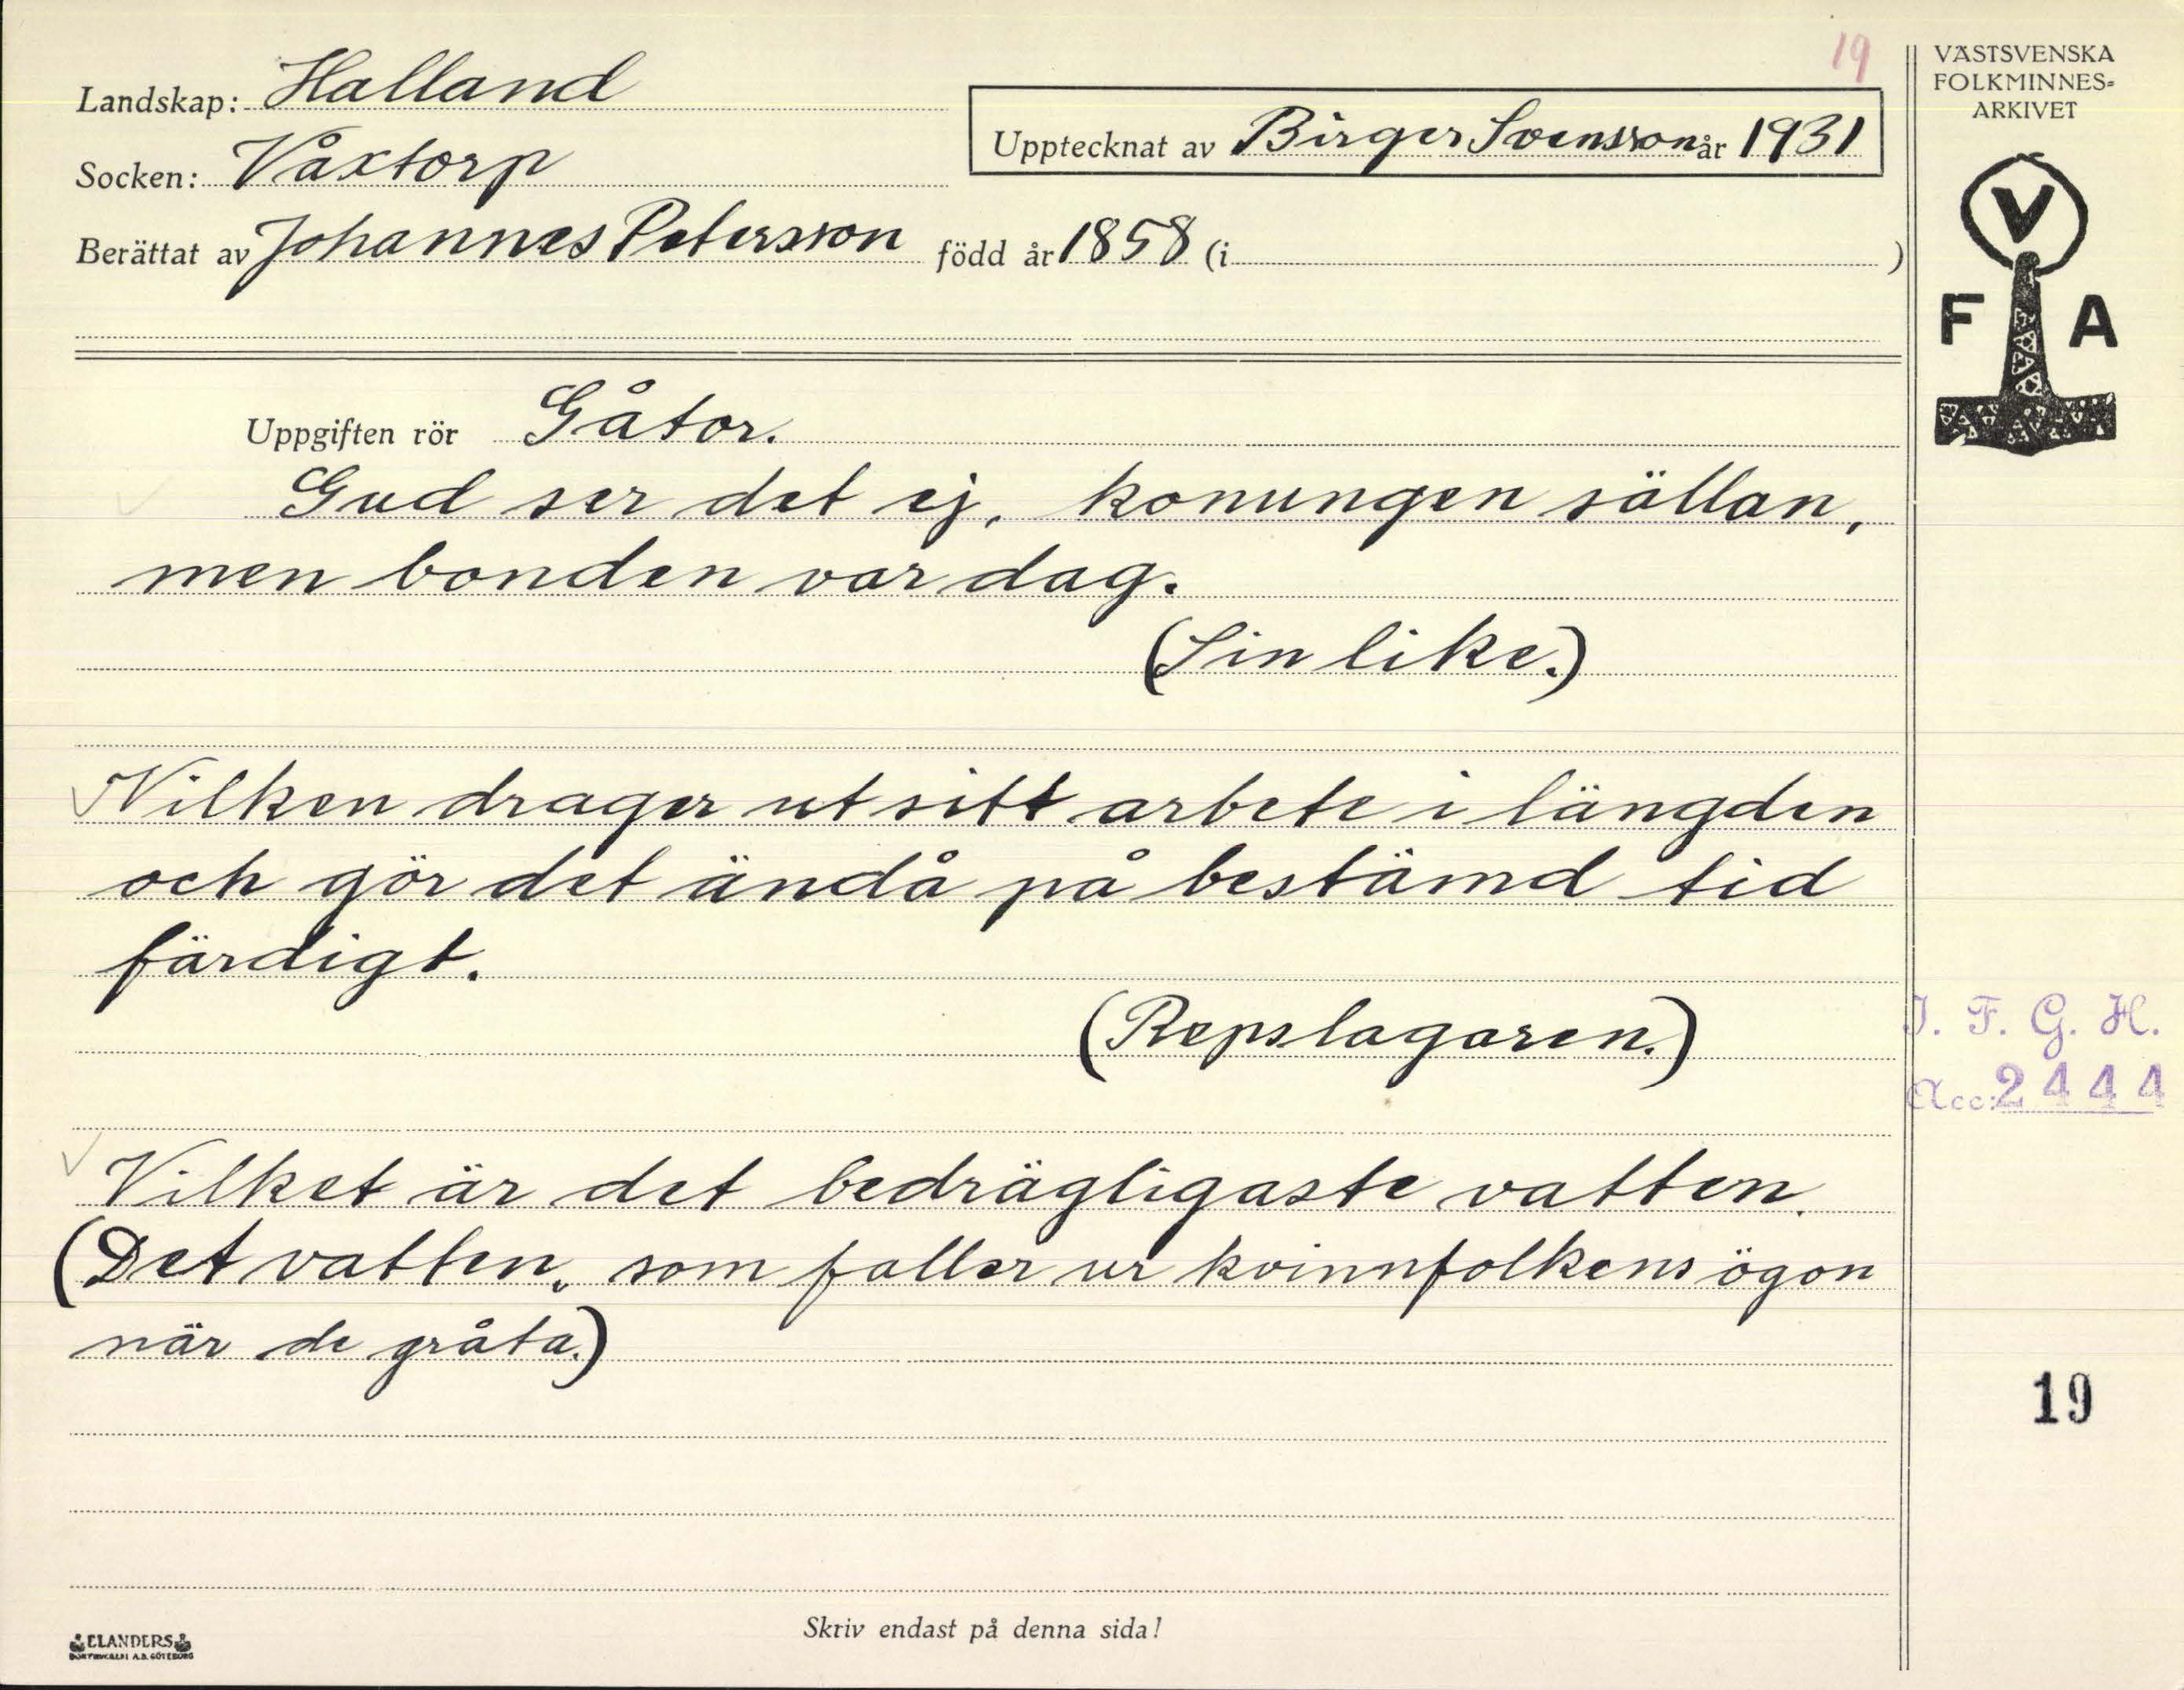 19
Landskap: Halland
Upptecknat av Birger Svensson år 1931
Socken: Våxtorp
Berättat av Johannes Petersson född år 1858 (i )
VÄSTSVENSKA
FOLKMINNES-
ARKIVET
V
F A
Uppgiften rör Gåtor.
Gud ser det ej, konungen sällan,
men bonden var dag.
(Sin like.)
Vilken drager ut sitt arbete i längden
och gör det ändå på bestämd tid
färdigt.
(Repslagaren.)
I. F. G. H.
Acc: 2444
Vilket är det bedrägligaste vatten.
(Det vatten, som faller ur kvinnfolkens ögon
när de gråta.)
19
Skriv endast på denna sida!
ELANDERS
BOKTRYCKERI A.B. GÖTEBORG